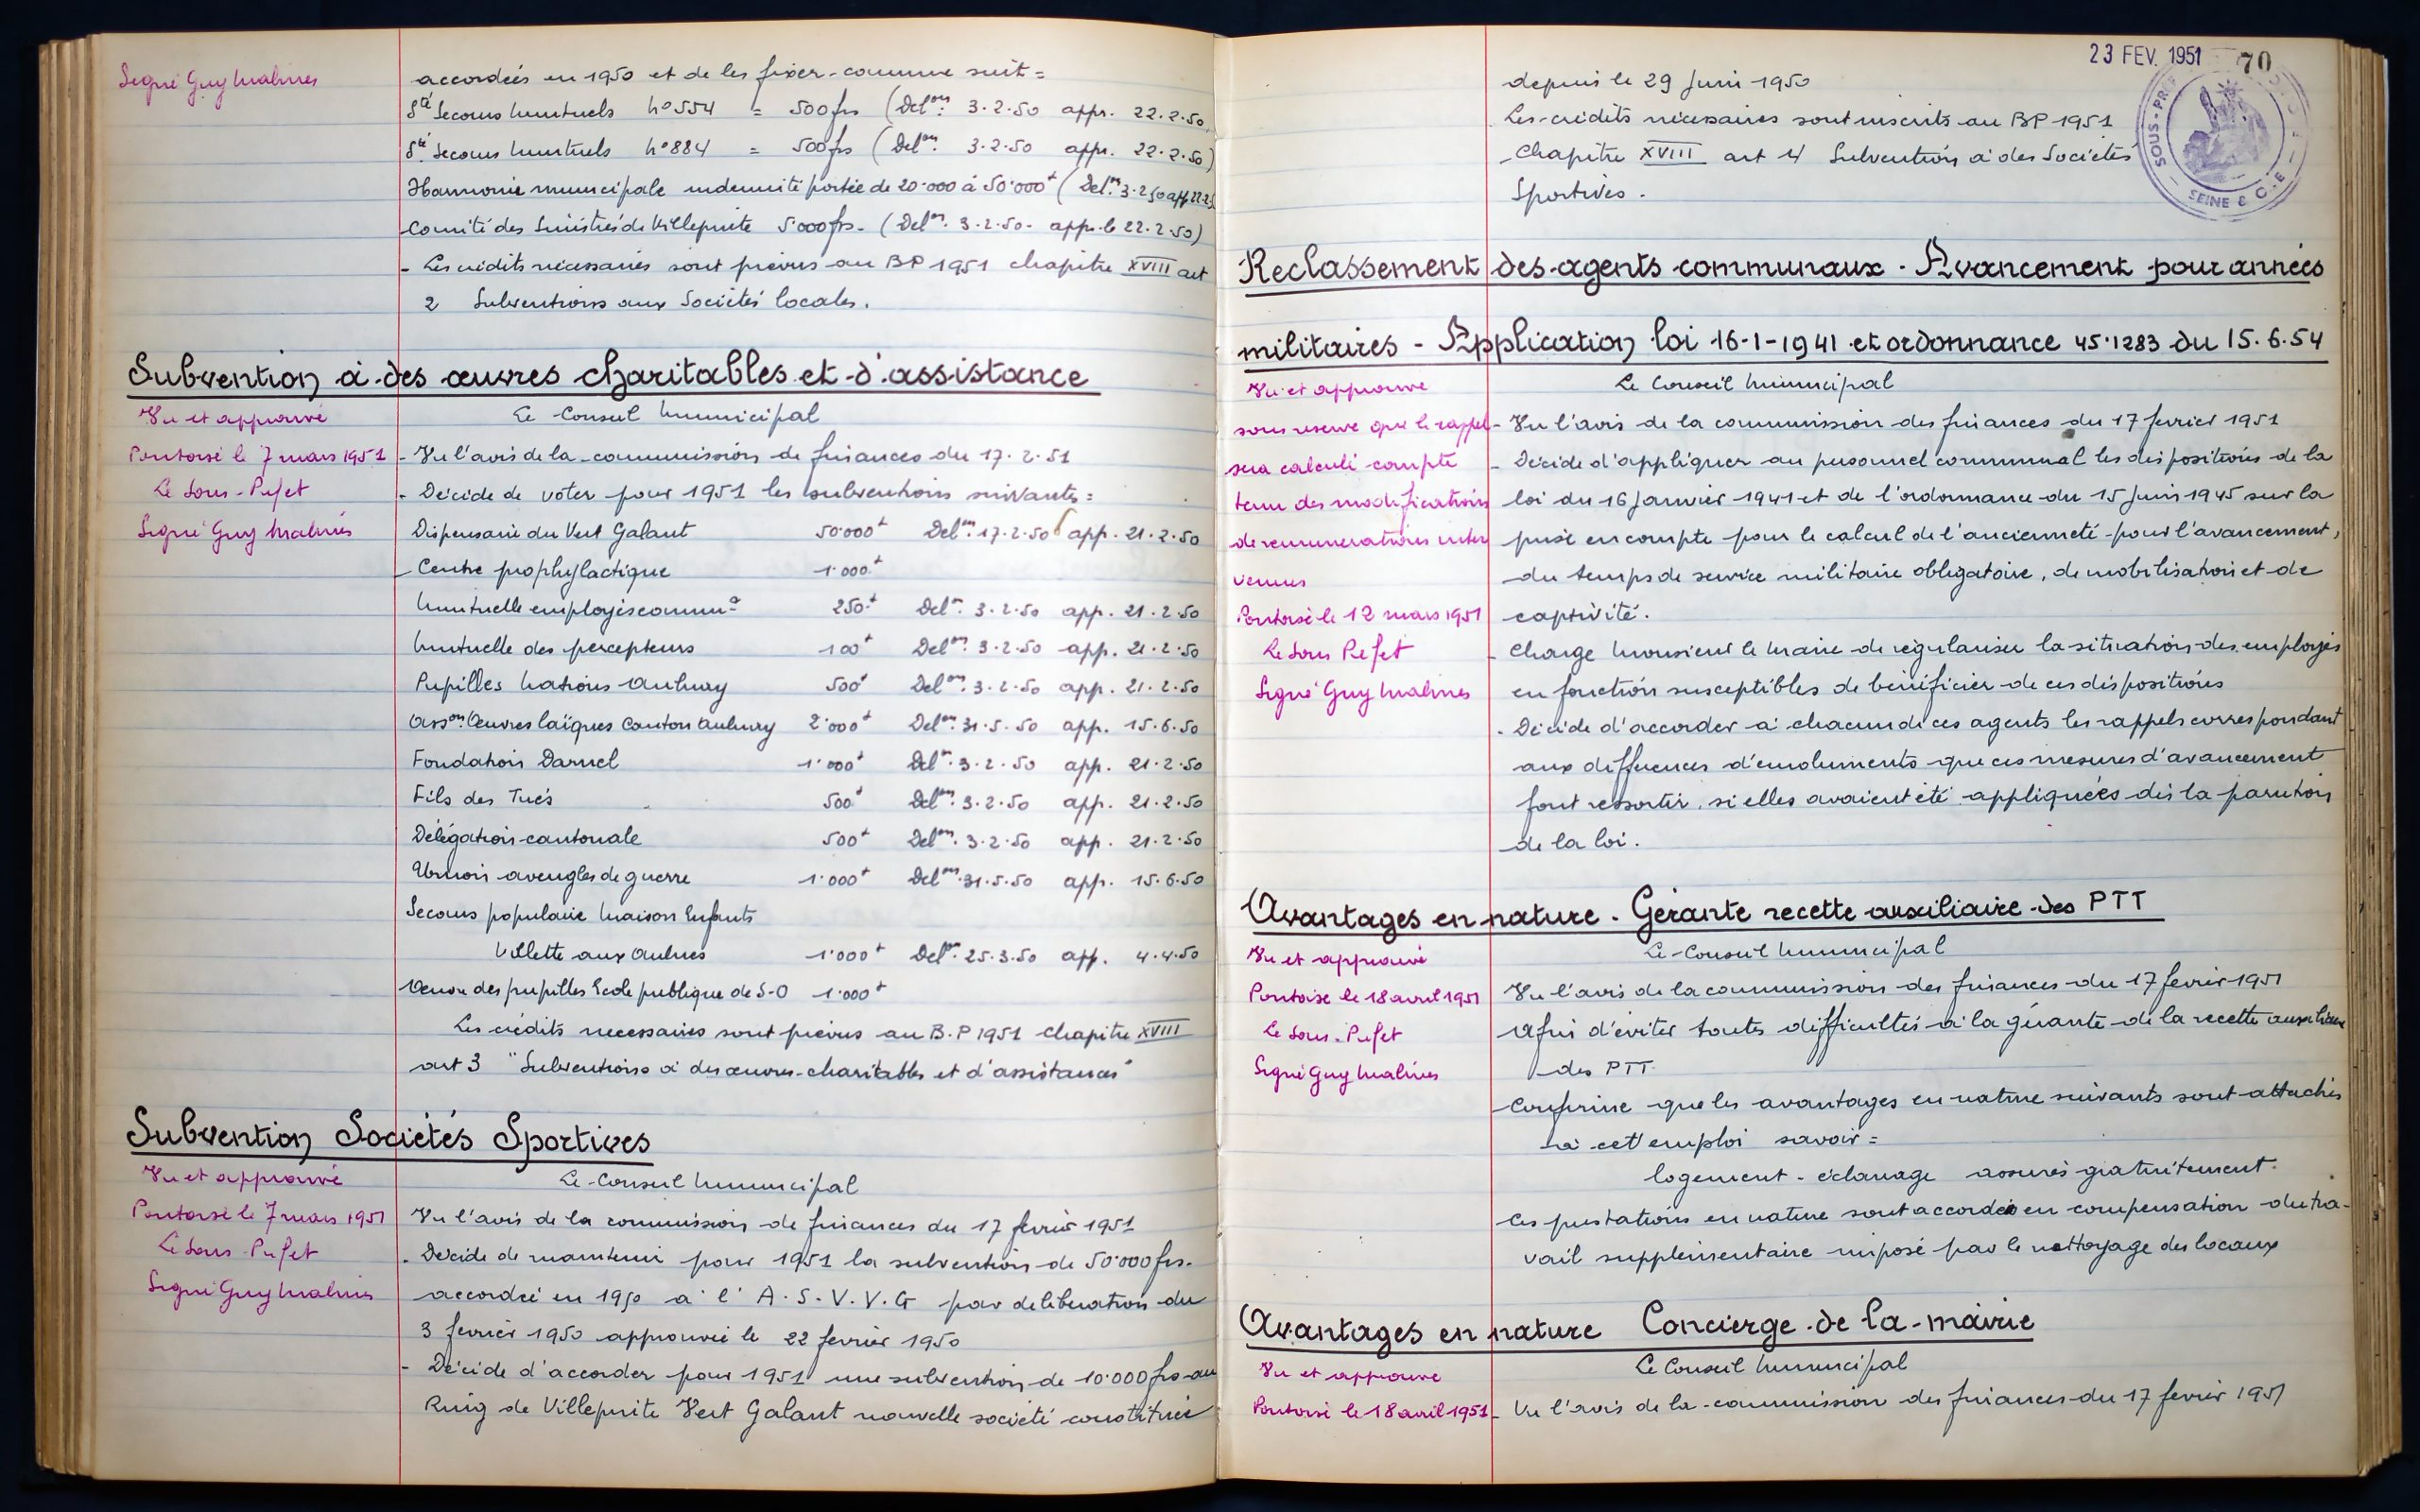 Signé Guy Malines
accordées en 1950 et de les fixer comme suit =
Sté Secours Mutuels No 554 = 500 frs (Delon. 3.2.50 appr. 22.2.50
Sté Secours Mutuels No 884 = 500 frs (Delon. 3.2.50 appr. 22.2.50)
Harmonie municipale indemnité portée de 20.000 à 50.000f (Delon 3.2.50 app 22.2.5
Comité des Sinistrés de Villepinte 5.000 frs. (Delon. 3.2.50. appr. le 22.2.50)
- Les crédits nécessaires sont prévus au BP 1951 chapitre XVIII art
2 Subventions aux Sociétés locales.
Subvention à des œuvres charitables et d'assistance
Vu et approuvé
Pontoise le 7 mars 1951
Le Sous-Préfet
Signé Guy Malines
Le Conseil Municipal
- Vu l'avis de la commission de finances du 17.2.51
- Décide de voter pour 1951 les subventions suivantes =
Dispensaire du Vert Galant 50.000f Delon. 17.2.50 app. 21.2.50
Centre prophylactique 1.000f
Mutuelle employés communx 250f Delon. 3.2.50 app. 21.2.50
Mutuelle des percepteurs 100f Delon. 3.2.50 app. 21.2.50
Pupilles Nations Aulnay 500f Delon. 3.2.50 app. 21.2.50
Asson. Œuvres laïques Canton Aulnay 2.000f Delon. 31.5.50 app. 15.6.50
Fondation Darnel 1.000f Delon. 3.2.50 app. 21.2.50
Fils des Tués 500f Delon. 3.2.50 app. 21.2.50
Délégation cantonale 500f Delon. 3.2.50 app. 21.2.50
Union aveugles de guerre 1.000f Delon. 31.5.50 app. 15.6.50
Secours populaire Maison Enfants
Villette aux Aulnes 1.000f Delon. 25.3.50 app. 4.4.50
Œuvre des pupilles Ecole publique de S-O 1.000f
Les crédits necessaires sont prévus au B.P 1951 Chapitre XVIII
art 3 "Subventions à des œuvres charitables et d'assistances"
Subvention Sociétés Sportives
Vu et approuvé
Pontoise le 7 mars 1951
Le Sous-Préfet
Signé Guy Malines
Le Conseil Municipal
Vu l'avis de la commission de finances du 17 février 1951
- Décide de maintenir pour 1951 la subvention de 50.000 frs.
accordée en 1950 à l'A.S.V.V.G par délibération du
3 février 1950 approuvée le 22 février 1950
- Décide d'accorder pour 1951 une subvention de 10.000 frs au
Ring de Villepinte Vert Galant nouvelle société constituée
23 FEV. 1951
70
SOUS-PRÉF
SEINE & O
depuis le 29 Juin 1950
Les crédits nécessaires sont inscrits au BP 1951
Chapitre XVIII art 4 Subvention à des Sociétés
Sportives.
Reclassement des agents communaux. Avancement pour années
militaires - Application loi 16-1-1941 et ordonnance 45.1283 du 15.6.54
Vu et approuvé
sous reserve que le rappel
sera calculé compte
tenu des modifications
de remunerations inter
venues
Pontoise le 12 mars 1951
Le Sous Préfet
Signé Guy Malines
Le Conseil Municipal
- Vu l'avis de la commission des finances du 17 février 1951
- Décide d'appliquer au personnel communal les dispositions de la
loi du 16 Janvier 1941 et de l'ordonnance du 15 Juin 1945 sur la
prise en compte pour le calcul de l'ancienneté pour l'avancement,
du temps de service militaire obligatoire, de mobilisation et de
captivité.
- Charge Monsieur le Maire de régulariser la situation des employés
en fonction susceptibles de bénéficier de ces dispositions
- Décide d'accorder à chacun de ces agents les rappels correspondant
aux differences d'émoluments que ces mesures d'avancement
font ressortir, si elles avaient été appliquées dès la parution
de la loi.
Avantages en nature. Gérante recette auxiliaire des PTT
Vu et approuvé
Pontoise le 18 avril 1951
Le Sous-Préfet
Signé Guy Malines
Le Conseil Municipal
Vu l'avis de la commission des finances du 17 février 1951
Afin d'éviter toutes difficultés à la gérante de la recette auxiliaire
des PTT.
Confirme que les avantages en nature suivants sont attachés
à cet emploi savoir =
logement - éclairage assurés gratuitement.
Ces prestations en nature sont accordées en compensation du tra-
vail supplémentaire imposé par le nettoyage des locaux
Avantages en nature Concierge de la mairie
Vu et approuvé
Pontoise le 18 avril 1951
Le Conseil Municipal
- Vu l'avis de la commission des finances du 17 février 1951